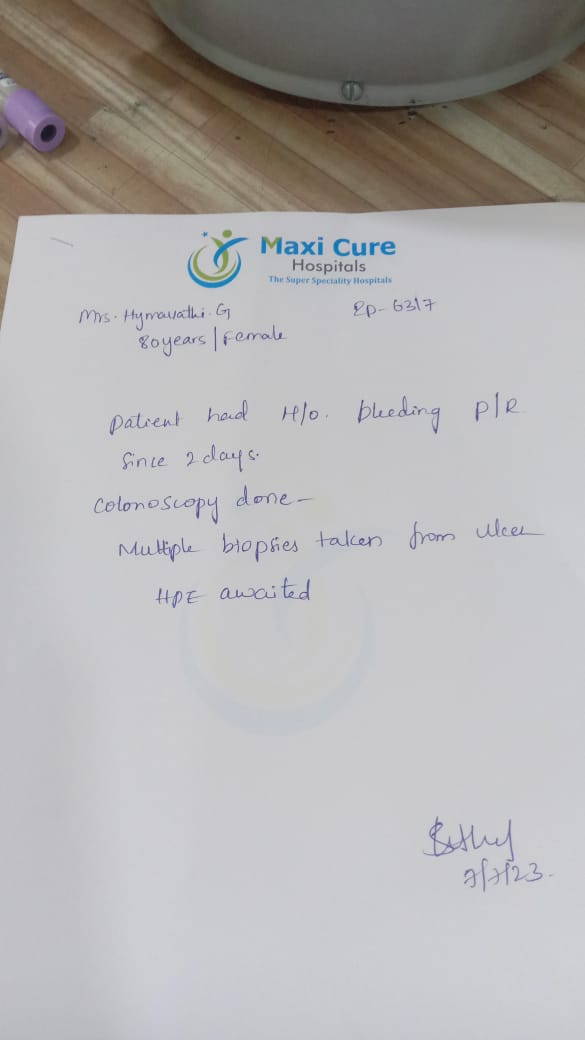 Maxi Cure
Hospitals
The Super Speciality Hospitals
Mrs. Hymavathi. G
80years/Female
IP-6317
patient had H/o. bleeding P/R
Since 2 days.
Colonoscopy done-
Multiple biopsies taken from ulcer
HPE awaited
7/7/23.